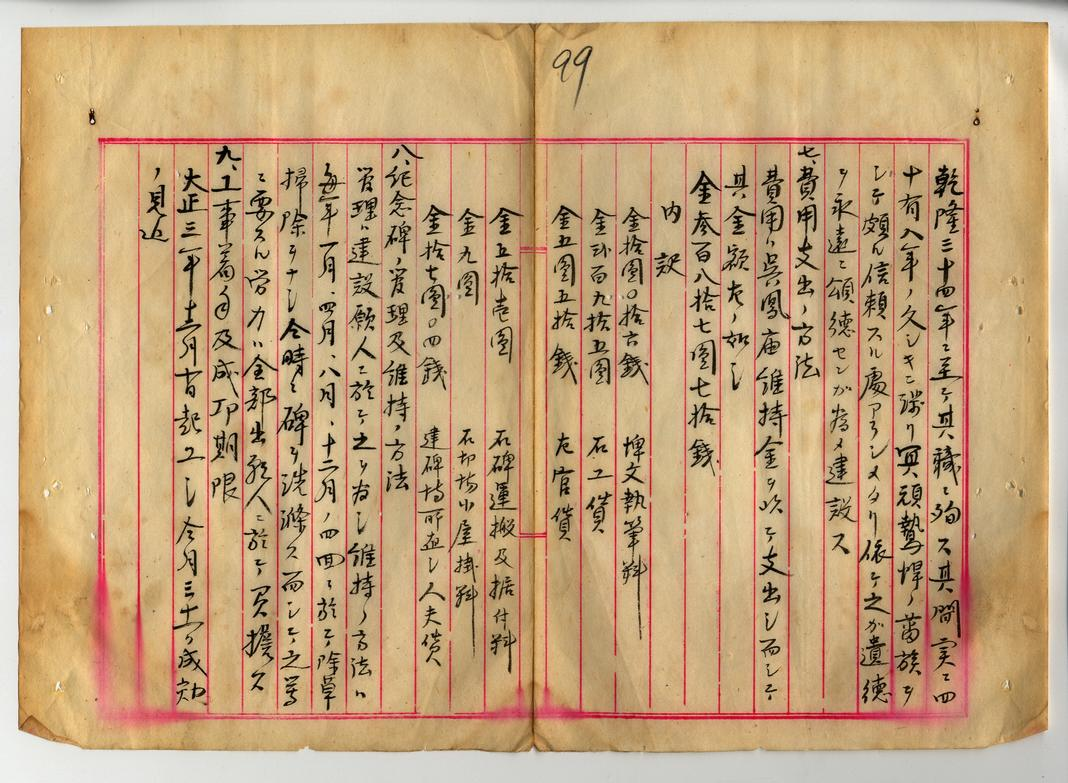 99
乾隆三十四年ニ至テ其職ニ殉ス其間実ニ四
十有八年ノ久シキニ渉リ冥頑鷙悍ノ蕃族ヲ
シテ頗ル信頼スル處アラシメタリ依テ之カ遺徳
ヲ永遠ニ頌徳センカ為メ建設ス
七、費用支出ノ方法
費用ハ呉鳳庙維持金ヲ以テ支出シ而シテ
其金額左ノ如シ
金参百八拾七圓七拾銭
内訳
金拾圓〇拾六銭 碑文執筆料
金弐百九拾五圓 石工賃
金五圓五拾銭 左官賃
金五拾壱圓 石碑運搬及据付料
金九圓 石切場小屋掛料
金拾七圓〇四銭 建碑場所直シ人夫賃
八、紀念碑ノ管理及維持ノ方法
管理ハ建設願人ニ於テ之ヲ為シ維持ノ方法ハ
毎年一月、四月、八月、十二月ノ四回ニ於テ除草
掃除ヲナシ仝時ニ碑ヲ洗滌ス而シテ之等
ニ要スル労力ハ全部出願人ニ於テ負擔ス
九、工事着手及成功期限
大正三年十二月 起工シ今月三十一日成功
ノ見込